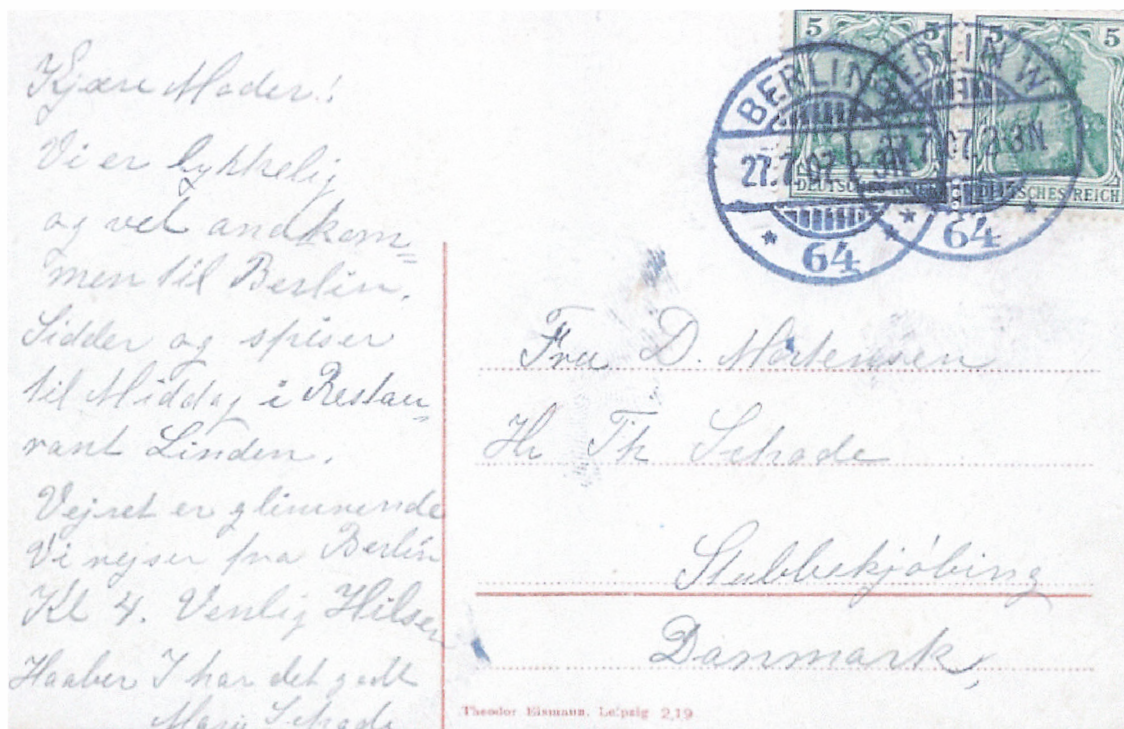 Kjære Moder!
Vi er lykkelig
og vel andkom=
men til Berlin.
Sidder og spiser
til Middag i Restau=
rant Linden.
Vejret er glimrende
Vi rejser fra Berlin
Kl 4. Venlig Hilsen
Haaber I har det godt
Mary Schade
5 5 5 5
BERLIN W
27.7.07. 2-3N
64
BERLIN W
27.7.07. 2-3N
64
DEUTSCHES REICH
DEUTSCHES REICH
Fru D. Mortensen
Hr Th Schade
Stubbekjøbing
Danmark,
Theodor Eismann, Leipzig 2,19